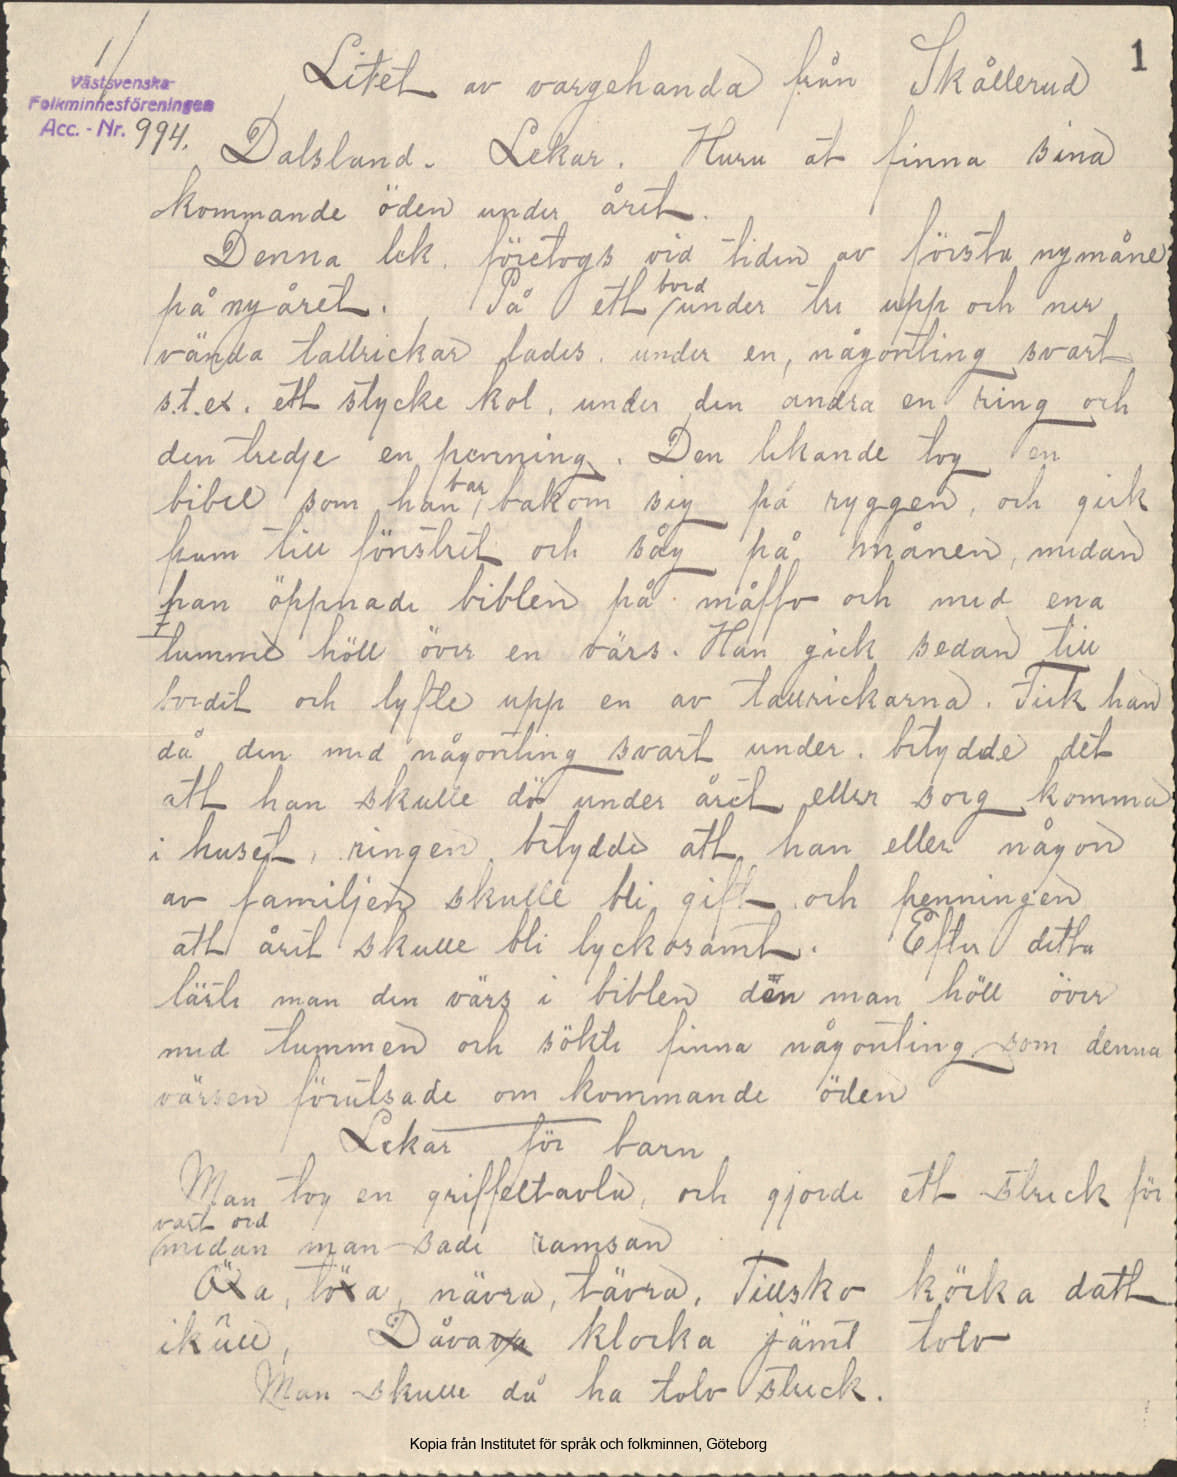 1/
1
Västsvenska
Folkminnesföreningen
Acc. - Nr. 994.
Litet av vargehanda från Skållerud
Dalsland. Lekar. Huru at finna sina
kommande öden under året.
Denna lek företogs vid tiden av första nymåne
på nyåret. På ett bord under tre upp och ner
vända tallrickar lades under en, någonting svart
s.t.ex. ett stycke kol, under den andra en ring och
den tredje en penning. Den lekande tog en
bibel som han bar bakom sig på ryggen, och gick
fram till fönstret och såg på månen, medan
han öppnade biblen på måffo och med ena
tumme höll över en värs. Han gick sedan till
bordet och lyfte upp en av tallrickarna. Fick han
då den med någonting svart under, betydde det
att han skulle dö under året eller sorg komma
i huset, ringen betydde att han eller någon
av familjen skulle bli gift och penningen
att året skulle bli lyckosamt. Efter detta
läste man den värs i biblen den man höll över
med tummen och sökte finna någonting som denna
värsen förutsade om kommande öden
Lekar för barn
Man tog en griffeltavla, och gjorde ett streck för
vart ord
medan man sade ramsan
Öxa, töxa, nävra, tävra, Tillsko köcka datt
ikull, Dåva klocka jämt tolv
Man skulle då ha tolv streck.
Kopia från Institutet för språk och folkminnen, Göteborg